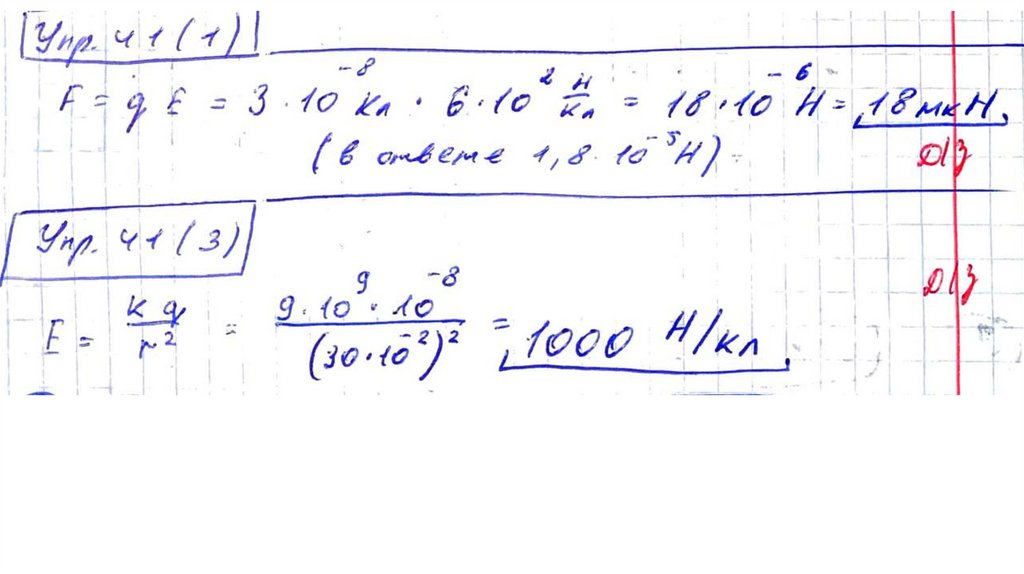 Упр. 41 (1)
F = q E = 3 · 10⁻⁸ Кл · 6 · 10² Н/Кл = 18 · 10⁻⁶ Н = 18 мкН.
(в ответе 1,8 · 10⁻⁵ Н)
Д/з
Упр. 41 (3)
Д/з
E = kq/r² = 9 · 10⁹ · 10⁻⁸/(30 · 10⁻²)² = 1000 Н/кл.